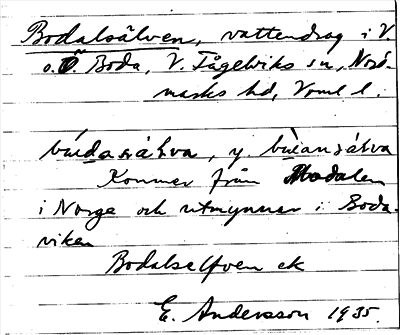 Bodalsälven, vattendrag i V.
o. Ö. Boda, V. Fågelviks sn, Nord-
marks hd, Vrml l.
Kommer från Modalen
i Norge och utmynnar i Boda-
viken
Bodalselfven ek
E. Andersson 1935.